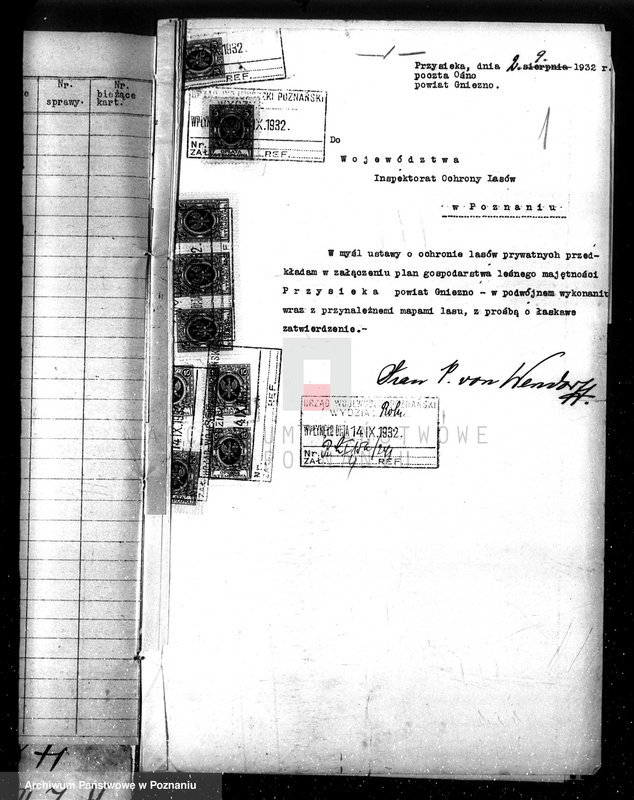 Nr.
sprawy.
Nr.
bieżące
kart.
1932.
REF.
Przysieka, dnia 2. 9. sierpnia 1932 r.
poczta Ośno
powiat Gniezno.
URZĄD WOJEWÓDZKI POZNAŃSKI
WYDZIAŁ
WPŁYNĘŁO IX.1932.
Nr.
ZAŁ. REF.
Do
Województwa
Inspektorat Ochrony Lasów
w Poznaniu
W myśl ustawy o ochronie lasów prywatnych przed-
kładam w załączeniu plan gospodarstwa leśnego majętności
Przysieka powiat Gniezno - w podwójnem wykonaniu
wraz z przynależnemi mapami lasu, z prośbą o łaskawe
zatwierdzenie.-
P. von Wendorff
URZĄD WOJEWÓDZKI POZNAŃSKI
WYDZIAŁ Roln
WPŁYNĘŁO DNIA 14 IX.1932.
Nr.
ZAŁ. 4 REF.
14 IX.1932.
14 IX.
REF.
ARCHIWUM PAŃSTWOWE
W POZNANIU
Archiwum Państwowe w Poznaniu